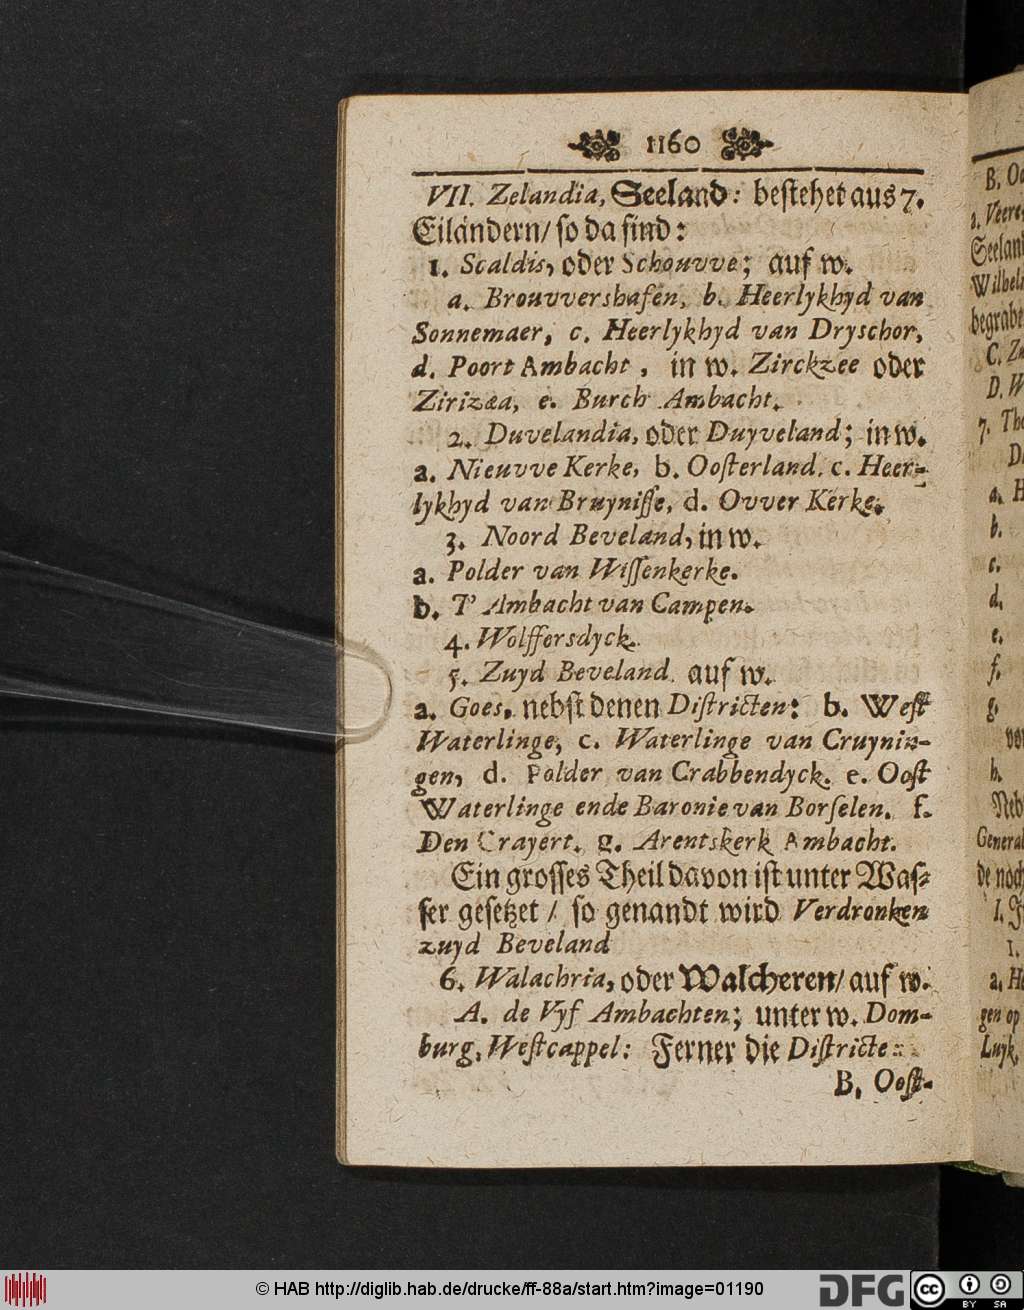 1160
VII. Zelandia, Seeland: bestehet aus 7.
Eiländern/ so da sind:
1. Scaldis, oder Schouvve; auf w.
a. Brouvvershafen, b. Heerlykhyd van
Sonnemaer, c. Heerlykhyd van Dryschor,
d. Poort Ambacht, in w. Zirckzee oder
Zirizæa, e. Burch Ambacht.
2. Duvelandia, oder Duyveland; in w.
a. Nieuvve Kerke, b. Oosterland. c. Heer-
lykhyd van Bruynisse, d. Ovver Kerke.
3. Noord Beveland, in w.
a. Polder van Wissenkerke.
b. T' Ambacht van Campen.
4. Wolffersdyck.
5. Zuyd Beveland. auf w.
a. Goes, nebst denen Districten: b. West
Waterlinge, c. Waterlinge van Cruynin-
gen, d. Polder van Crabbendyck. e. Oost
Waterlinge ende Baronie van Borselen. f.
Den Crayert. g. Arentskerk Ambacht.
Ein grosses Theil davon ist unter Was-
ser gesetzet / so genandt wird Verdronken
zuyd Beveland
6. Walachria, oder Walcheren/ auf w.
A. de Vyf Ambachten; unter w. Dom-
burg, Westcappel: Ferner die Districte:
B. Oost-
B. Oo
1. Veere
Seeland
Wilhel
begrabe
C. Zu
D. W
7. Tho
D
a. H
b.
c.
d.
e.
f.
g.
vo
h.
Neb
General
de noch
I. F
1.
a. He
gen op
Luyk,
© HAB http://diglib.hab.de/drucke/ff-88a/start.htm?image=01190
DFG
cc BY SA